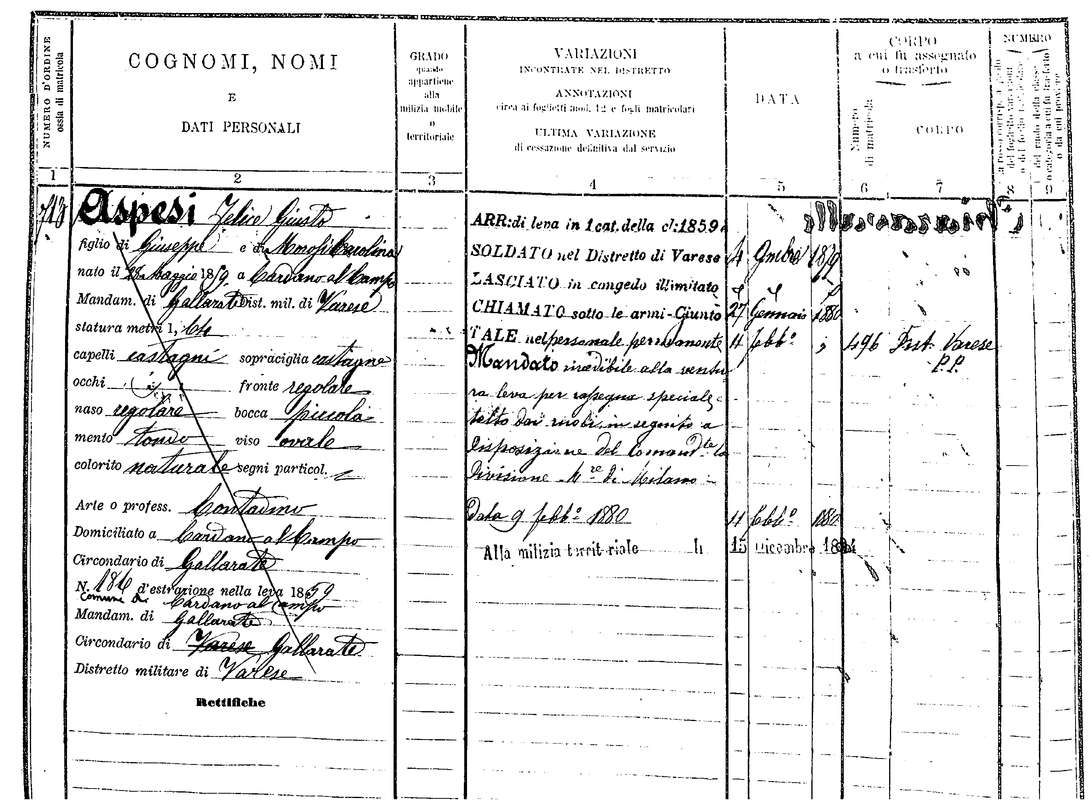 NUMERO D'ORDINE
ossia di matricola
COGNOMI, NOMI
E
DATI PERSONALI
GRADO
quando
appartiene
alla
milizia mobile
o
territoriale
VARIAZIONI
INCONTRATE NEL DISTRETTO
ANNOTAZIONI
circa ai foglietti mod. 12 e fogli matricolari
ULTIMA VARIAZIONE
di cessazione definitiva dal servizio
DATA
CORPO
a cui fu assegnato
o trasferto
Numero
di matricola
CORPO
NUMERO
1 2 3 4 5 6 7 8 9
713 Aspesi Felice Giusto
figlio di Giuseppe e di Carolina
nato il Maggio 1859 a Cardano al Campo
Mandam. di Gallarate Dist. mil. di Varese
statura metri 1, 64
capelli castagni sopraciglia castagne
occhi fronte regolare
naso regolare bocca piccola
mento tondo viso ovale
colorito naturale segni particol.
Arte o profess. Contadino
Domiciliato a Cardano al Campo
Circondario di Gallarate
N. 186 d'estrazione nella leva 1859
Comune di Cardano al Campo
Mandam. di Gallarate
Circondario di Varese Gallarate
Distretto militare di Varese
Rettifiche
ARR: di leva in 1 cat. della cl: 1859
SOLDATO nel Distretto di Varese 4 9mbre 1879
LASCIATO in congedo illimitato
CHIAMATO sotto le armi-Giunto 27 Gennaio 1880
TALE nel personale permanente 11 febb° " 496 Dist. Varese
P.P.
Mandato inedibile alla ventu
ra leva per rassegna speciale
tolto dai ruoli in seguito a
disposizione del Comandte la
Divisione Mre di Milano
Data 9 febb° 1880 11 febb° 1880
Alla milizia territoriale li 15 Dicembre